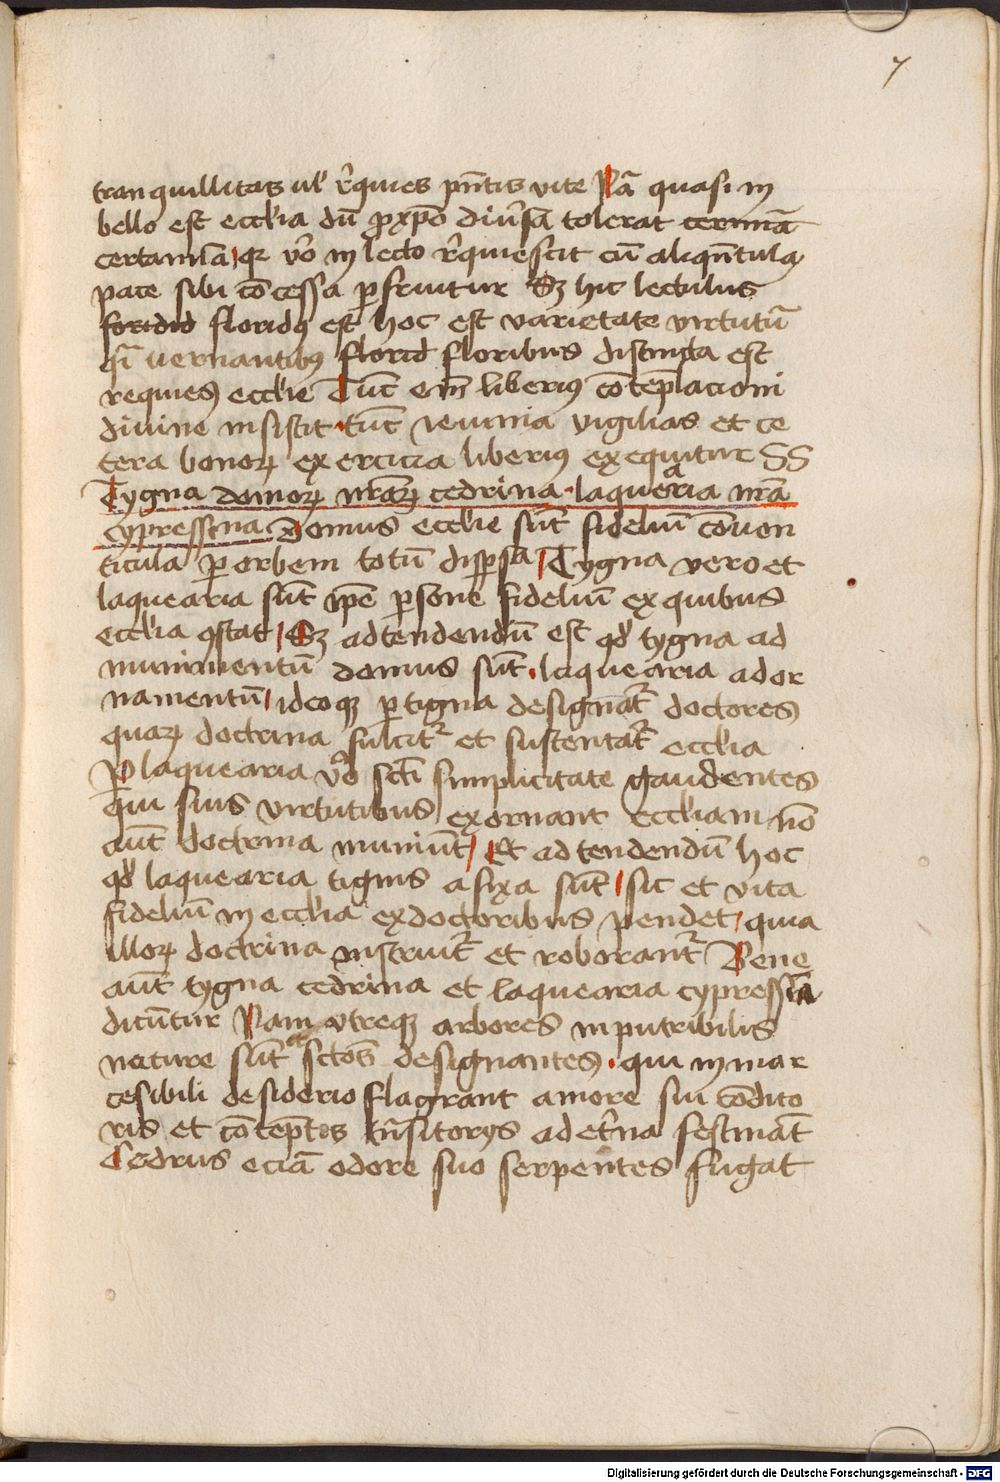 7
tranquillitas ul' r̉quies pn̄tis vite Nā quasi in
bello est ecclīa dū ꝓ xp̄o diu̓sa tolerat certmiā
certamīa qꝛ v̊o in lecto r̉quiescit cū aliqn̄tula
pace sibi cōcessa ꝑfruitur Sꝫ hic lectulus
foridid floridꝯ est hoc est varietate virtutū
qͣi vernantibꝯ florid floribus distincta est
requies ecclīe Tūc em̄ liberiꝯ cōteplacioni
diuine insistit tūc ieiunia vigilias et ce
tera bonoꝝ exercicia liberiꝯ exequitur SS
Tygna domoꝝ nr̄aꝝ cedrina laquearia nr̄a
cypressina Domus ecclīe sūt fidelium cōuen
ticula ꝑ orbem totū disꝑsa Tygna vero et
laquearia sūt ip̄e ꝑsone fidelium ex quibus
ecclīa ꝯstat Sꝫ adtendendū est qd̓ tygna ad
munimentū domus sūt laquearia ador
namentū ideoqꝫ ꝑ tigna designāt᷑ doctores
quaꝝ doctrina fulcit᷑ et sustentat᷑ ecclīa
ꝑ laquearia v̊o sc̄ti simplicitate gaudentes
qui suis virtutibus exornant ecclīam nō
aūt doctrina muniūt Et adtendendū hoc
qd̓ laquearia tignis afixa sūt sic et vita
fidelium in ecclīa ex doctoribus pendet quia
illoꝝ doctrina instruūt᷑ et roborant᷑ Bene
aūt tygna cedrina et laquearia cypressīa
dicūtur Nam vtreqꝫ arbores inputribilis
nature sūt et sc̄tos designantes qui inmar
cesibili desiderio flagrant amore sui cōdito
ris et cōteptos tn̄sitorys ad et̓na festināt
Cedrus eciā odore suo serpentes fugat
Digitalisierung gefördert durch die Deutsche Forschungsgemeinschaft - DFG